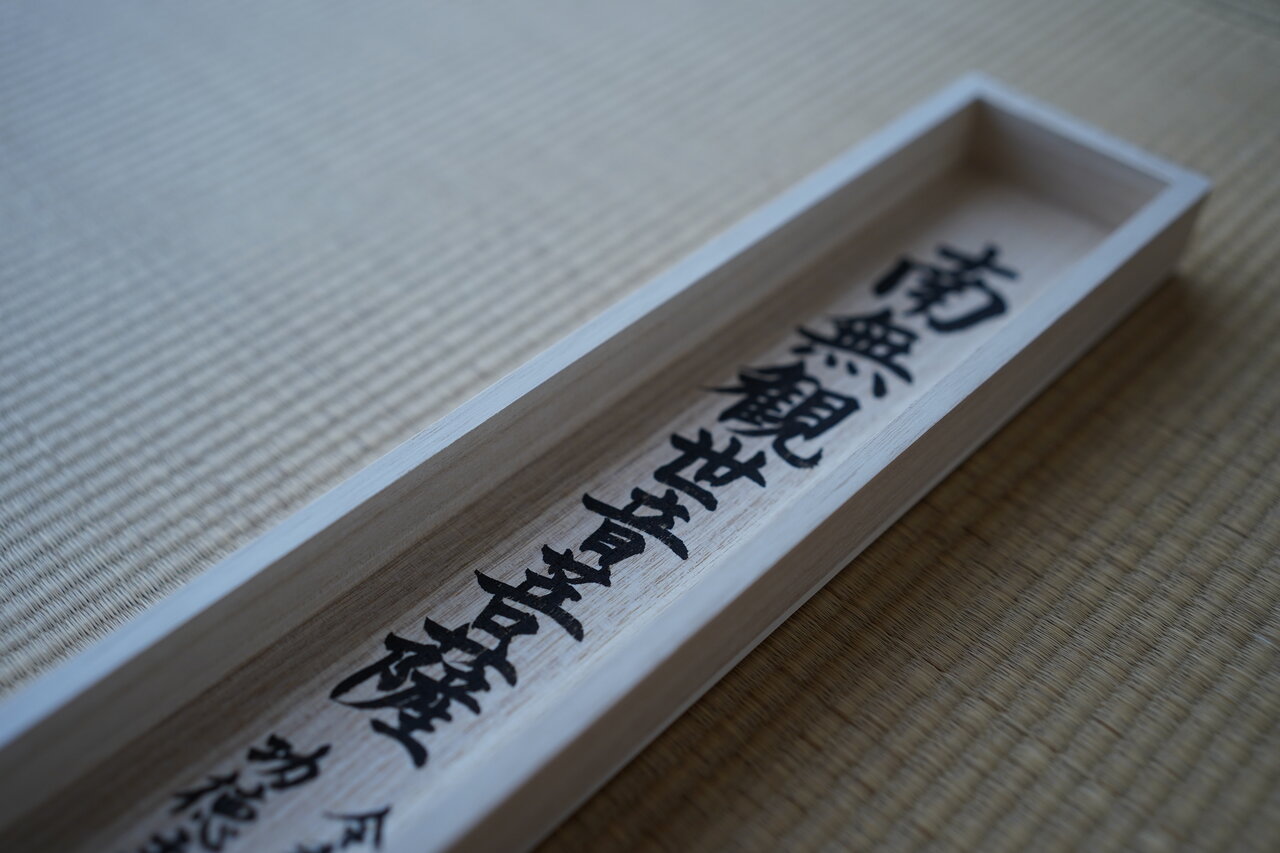 南無観世音菩薩
功徳